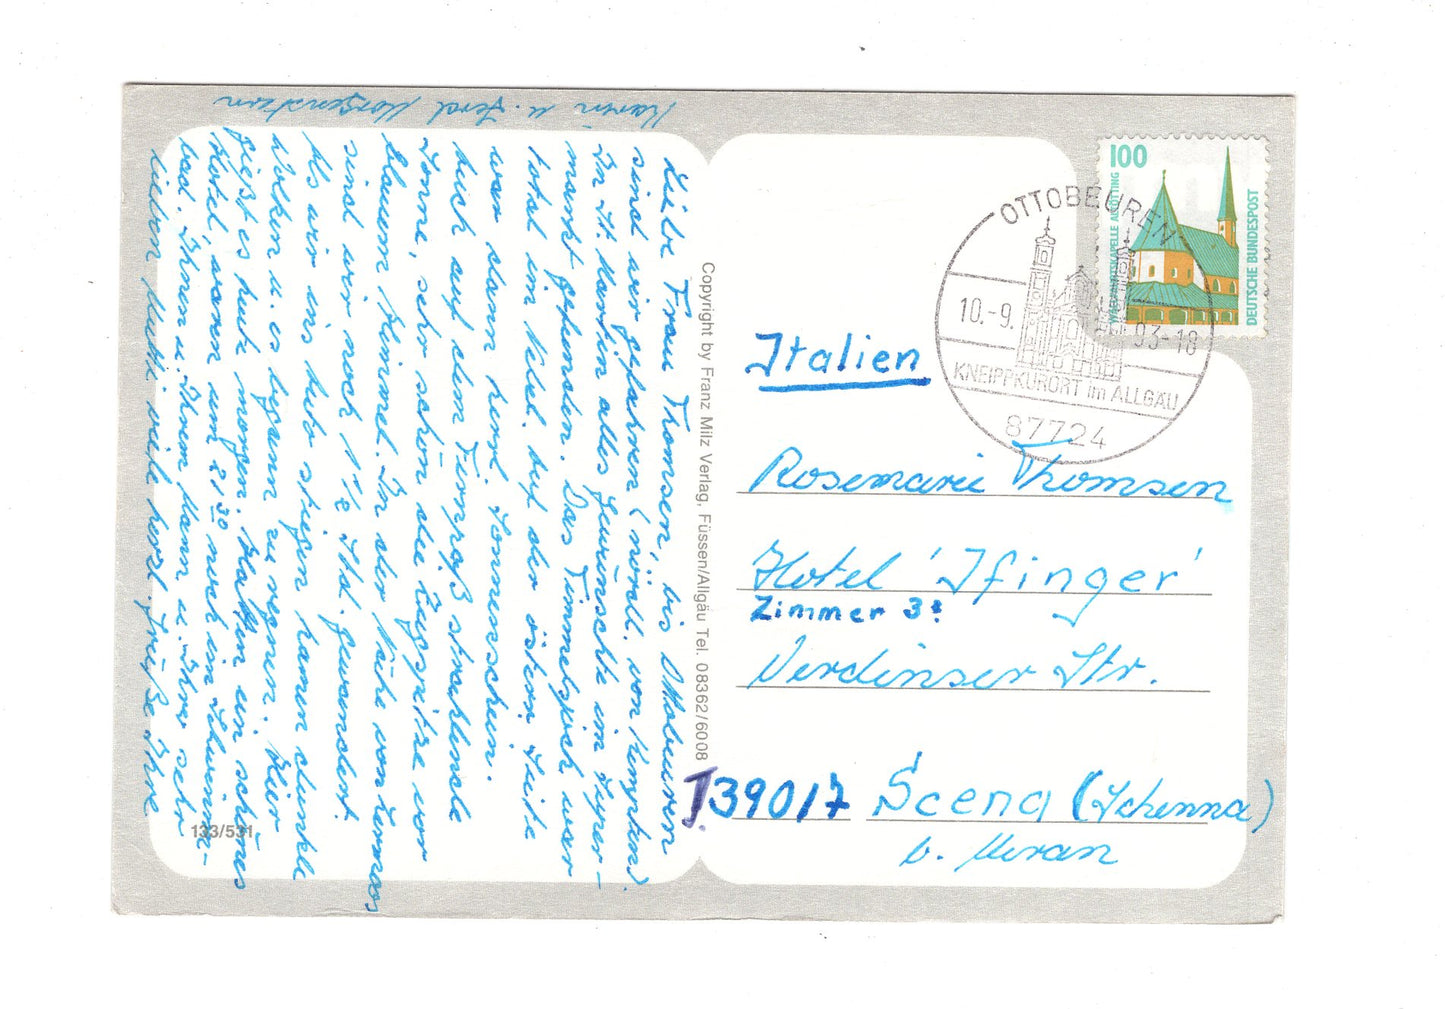 Liebe Frau Thomsen, bis Ottobeuren
sind wir gefahren (nördl. von Kempten).
In St. Martin alles Gewünschte im Super-
markt gefunden. Das Timmelsjoch war
total im Nebel. Auf der österr. Seite
war dann herrl. Sonnenschein.
Auch auf dem Fernpaß strahlende
Sonne, sehr schön die Zugspitze vor
blauem Himmel. In der Nähe von Lermoos
sind wir noch 1 1/2 Std. gewandert.
Als wir ins Auto stiegen kamen dunkle
Wolken u. es begann zu regnen. Hier
gießt es heute morgen. Hatten ein schönes
Hotel, waren um 21 30 noch im Schwimm-
bad. Ihnen u. Ihrem Mann u. Ihrer sehr
lieben Mutti viele herzl. Grüße Ihre
Karin u. Gerd Morgenstern
133/531
Copyright by Franz Milz Verlag, Füssen/Allgäu Tel. 08362/6008
100
WALLFAHRTSKAPELLE ALTÖTTING
DEUTSCHE BUNDESPOST
OTTOBEUREN
10.-9. 93-18
KNEIPPKURORT im ALLGÄU
87724
Italien
Rosemarie Thomsen
Hotel 'Ifinger'
Zimmer 3:
Verdinser Str.
I 39017 Scena (Schenna)
b. Meran